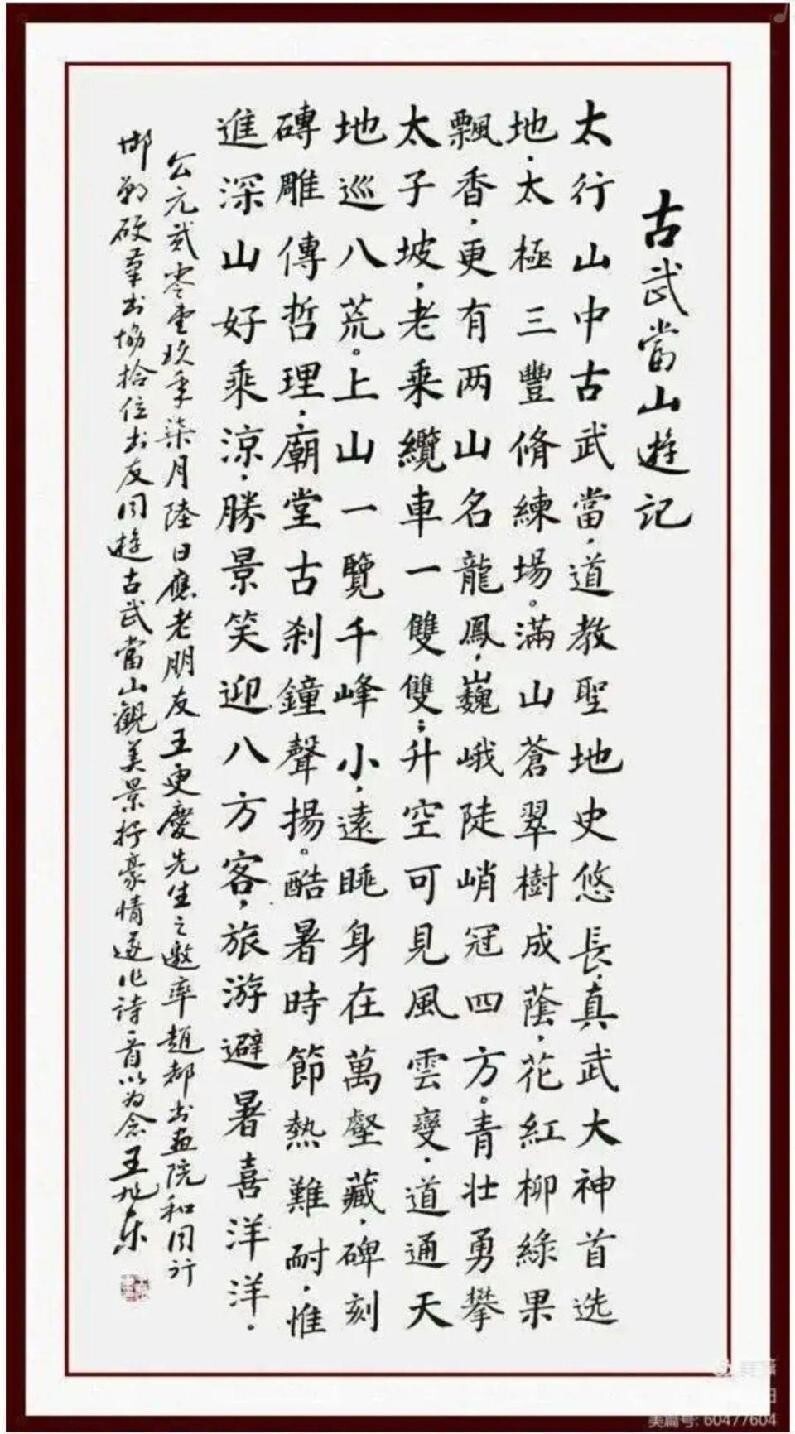 古武當山遊記
太行山中古武當，道教聖地史悠長，真武大神首选
地，太極三豐脩練場。滿山蒼翠樹成蔭，花紅柳綠果
飄香，更有两山名龍鳳，巍峨陡峭冠四方。青壮勇攀
太子坡，老乘纜車一雙雙；升空可見風雲變，道通天
地巡八荒。上山一覽千峰小，遠眺身在萬壑藏，碑刻
磚雕傳哲理，廟堂古刹鐘聲揚。酷暑時節熱難耐，惟
進深山好乘涼，勝景笑迎八方客，旅游避暑喜洋洋．
公元貳零壹玖年柒月陸日應老朋友王更慶先生之邀率趙都书画院和同行
邯鄲硬筆书協拾位书友同遊古武當山觀美景抒豪情遂作詩一首以为念王旭东
美篇号: 60477604